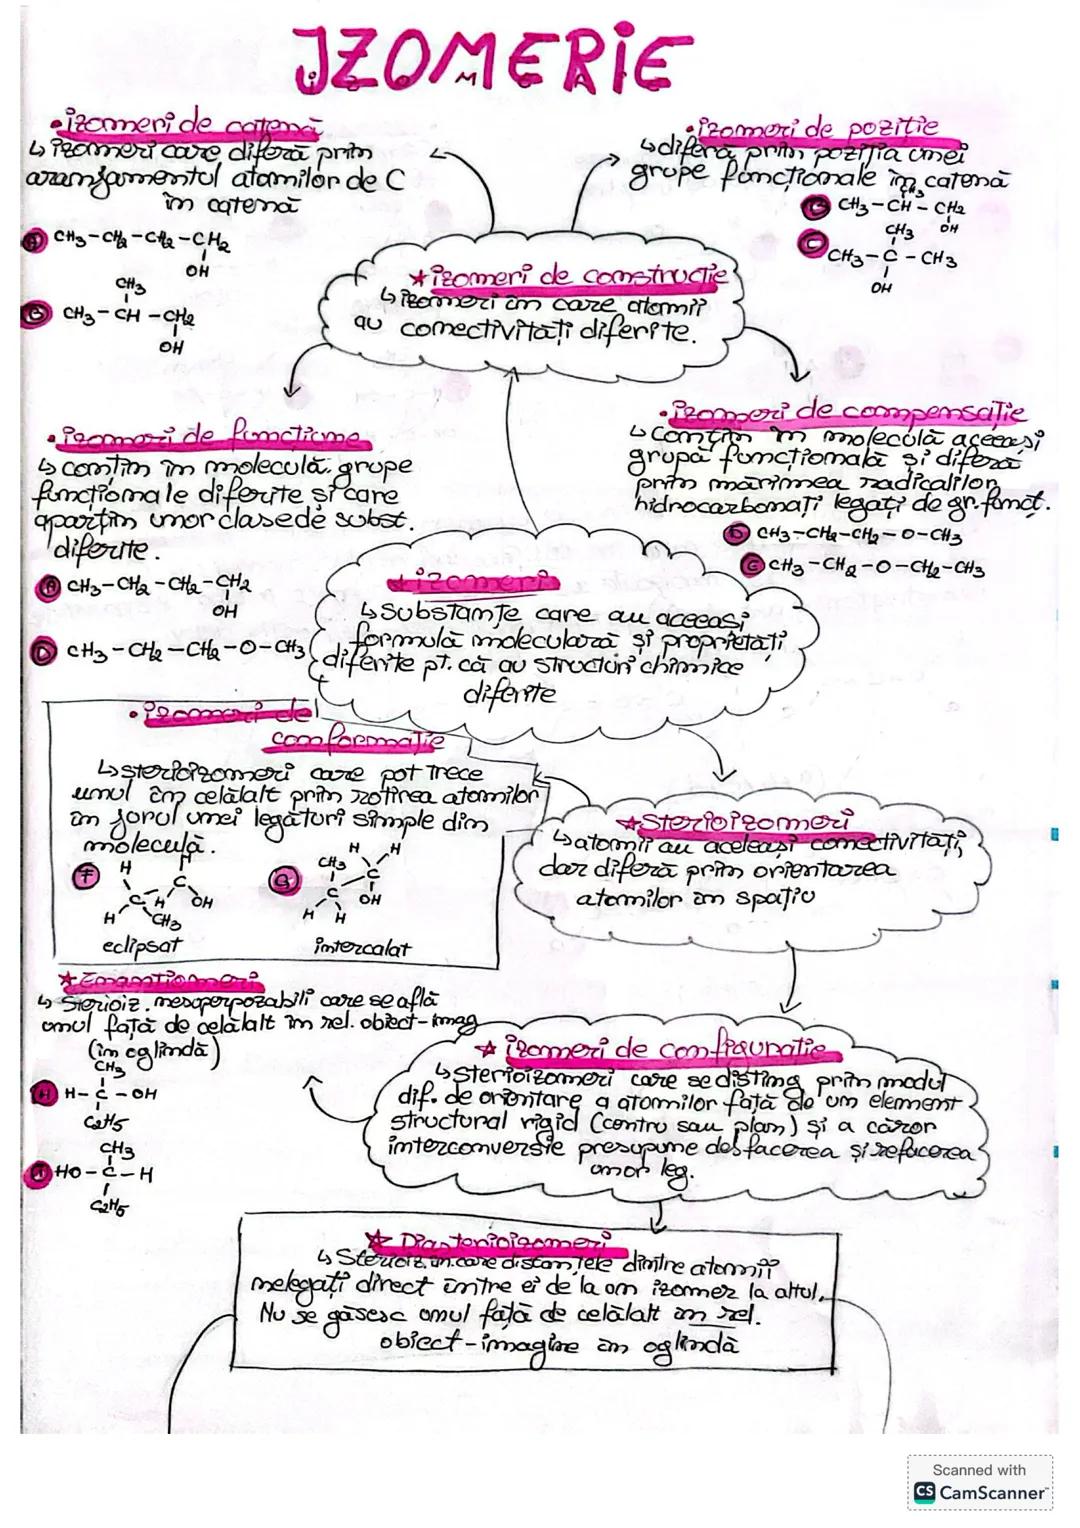 IZOMERIE
•izomeri de catenă
↳ izomeri care diferă prin
aranjamentul atomilor de C
în catenă
A CH3-CH2-CH2-CH2
OH
CH3
B CH3-CH-CH2
OH
•izomeri de poziție
↳diferă prin poziția unei
grupe funcționale în catenă
CH3
B CH3-CH-CH2
OH
CH3
C CH3-C-CH3
OH
★izomeri de construcție
↳izomeri în care atomii
au conectivități diferite.
•izomeri de funcțiune
↳ conțin în moleculă grupe
funcționale diferite și care
aparțin unor clase de subst.
diferite.
A CH3-CH2-CH2-CH2
OH
D CH3-CH2-CH2-O-CH3
•izomeri de compensație
↳ conțin în moleculă aceeași
grupă funcțională și diferă
prin mărimea radicalilor
hidrocarbonați legați de gr. funcț.
D CH3-CH2-CH2-O-CH3
CH3-CH2-O-CH2-CH3
★izomeri
↳ substanțe care au aceeași
formulă moleculară și proprietăți
diferite pt. că au structuri chimice
diferite
•izomeri de
conformație
↳sterioizomeri care pot trece
unul în celălalt prin rotirea atomilor
în jorul unei legături simple din
moleculă.
F H H C C H OH H CH3
eclipsat
G CH3 H H C C OH H H
intercalat
★Sterioizomeri
↳atomii au aceleași conectivități,
dar diferă prin orientarea
atomilor în spațiu
★Enantiomeri
↳ Sterioiz. nesuperpozabili care se află
unul față de celălalt în rel. obiect-imag
(în oglindă)
CH3
H H-C-OH
C2H5
CH3
HO-C-H
C2H5
★ izomeri de configurație
↳sterioizomeri care se disting prin modul
dif. de orientare a atomilor față de un element
structural rigid (centru sau plan) și a căror
interconversie presupune desfacerea și refacerea
unor leg.
★ Diasterioizomeri
↳ Sterioiz. în care distanțele dintre atomii
nelegați direct între ei de la un izomer la altul.
Nu se găsesc unul față de celălalt în rel.
obiect-imagine în oglindă
Scanned with
CS CamScanner